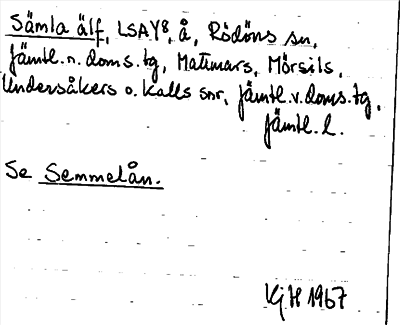 Sämla älf, LSAY8, å, Rödöns sn,
Jämtl. n. doms. tg, Mattmars, Mörsils,
Undersåkers o. Kalls snr, Jämtl. v. doms. tg,
Jämtl. l.
Se Semmelån.
KjH 1967